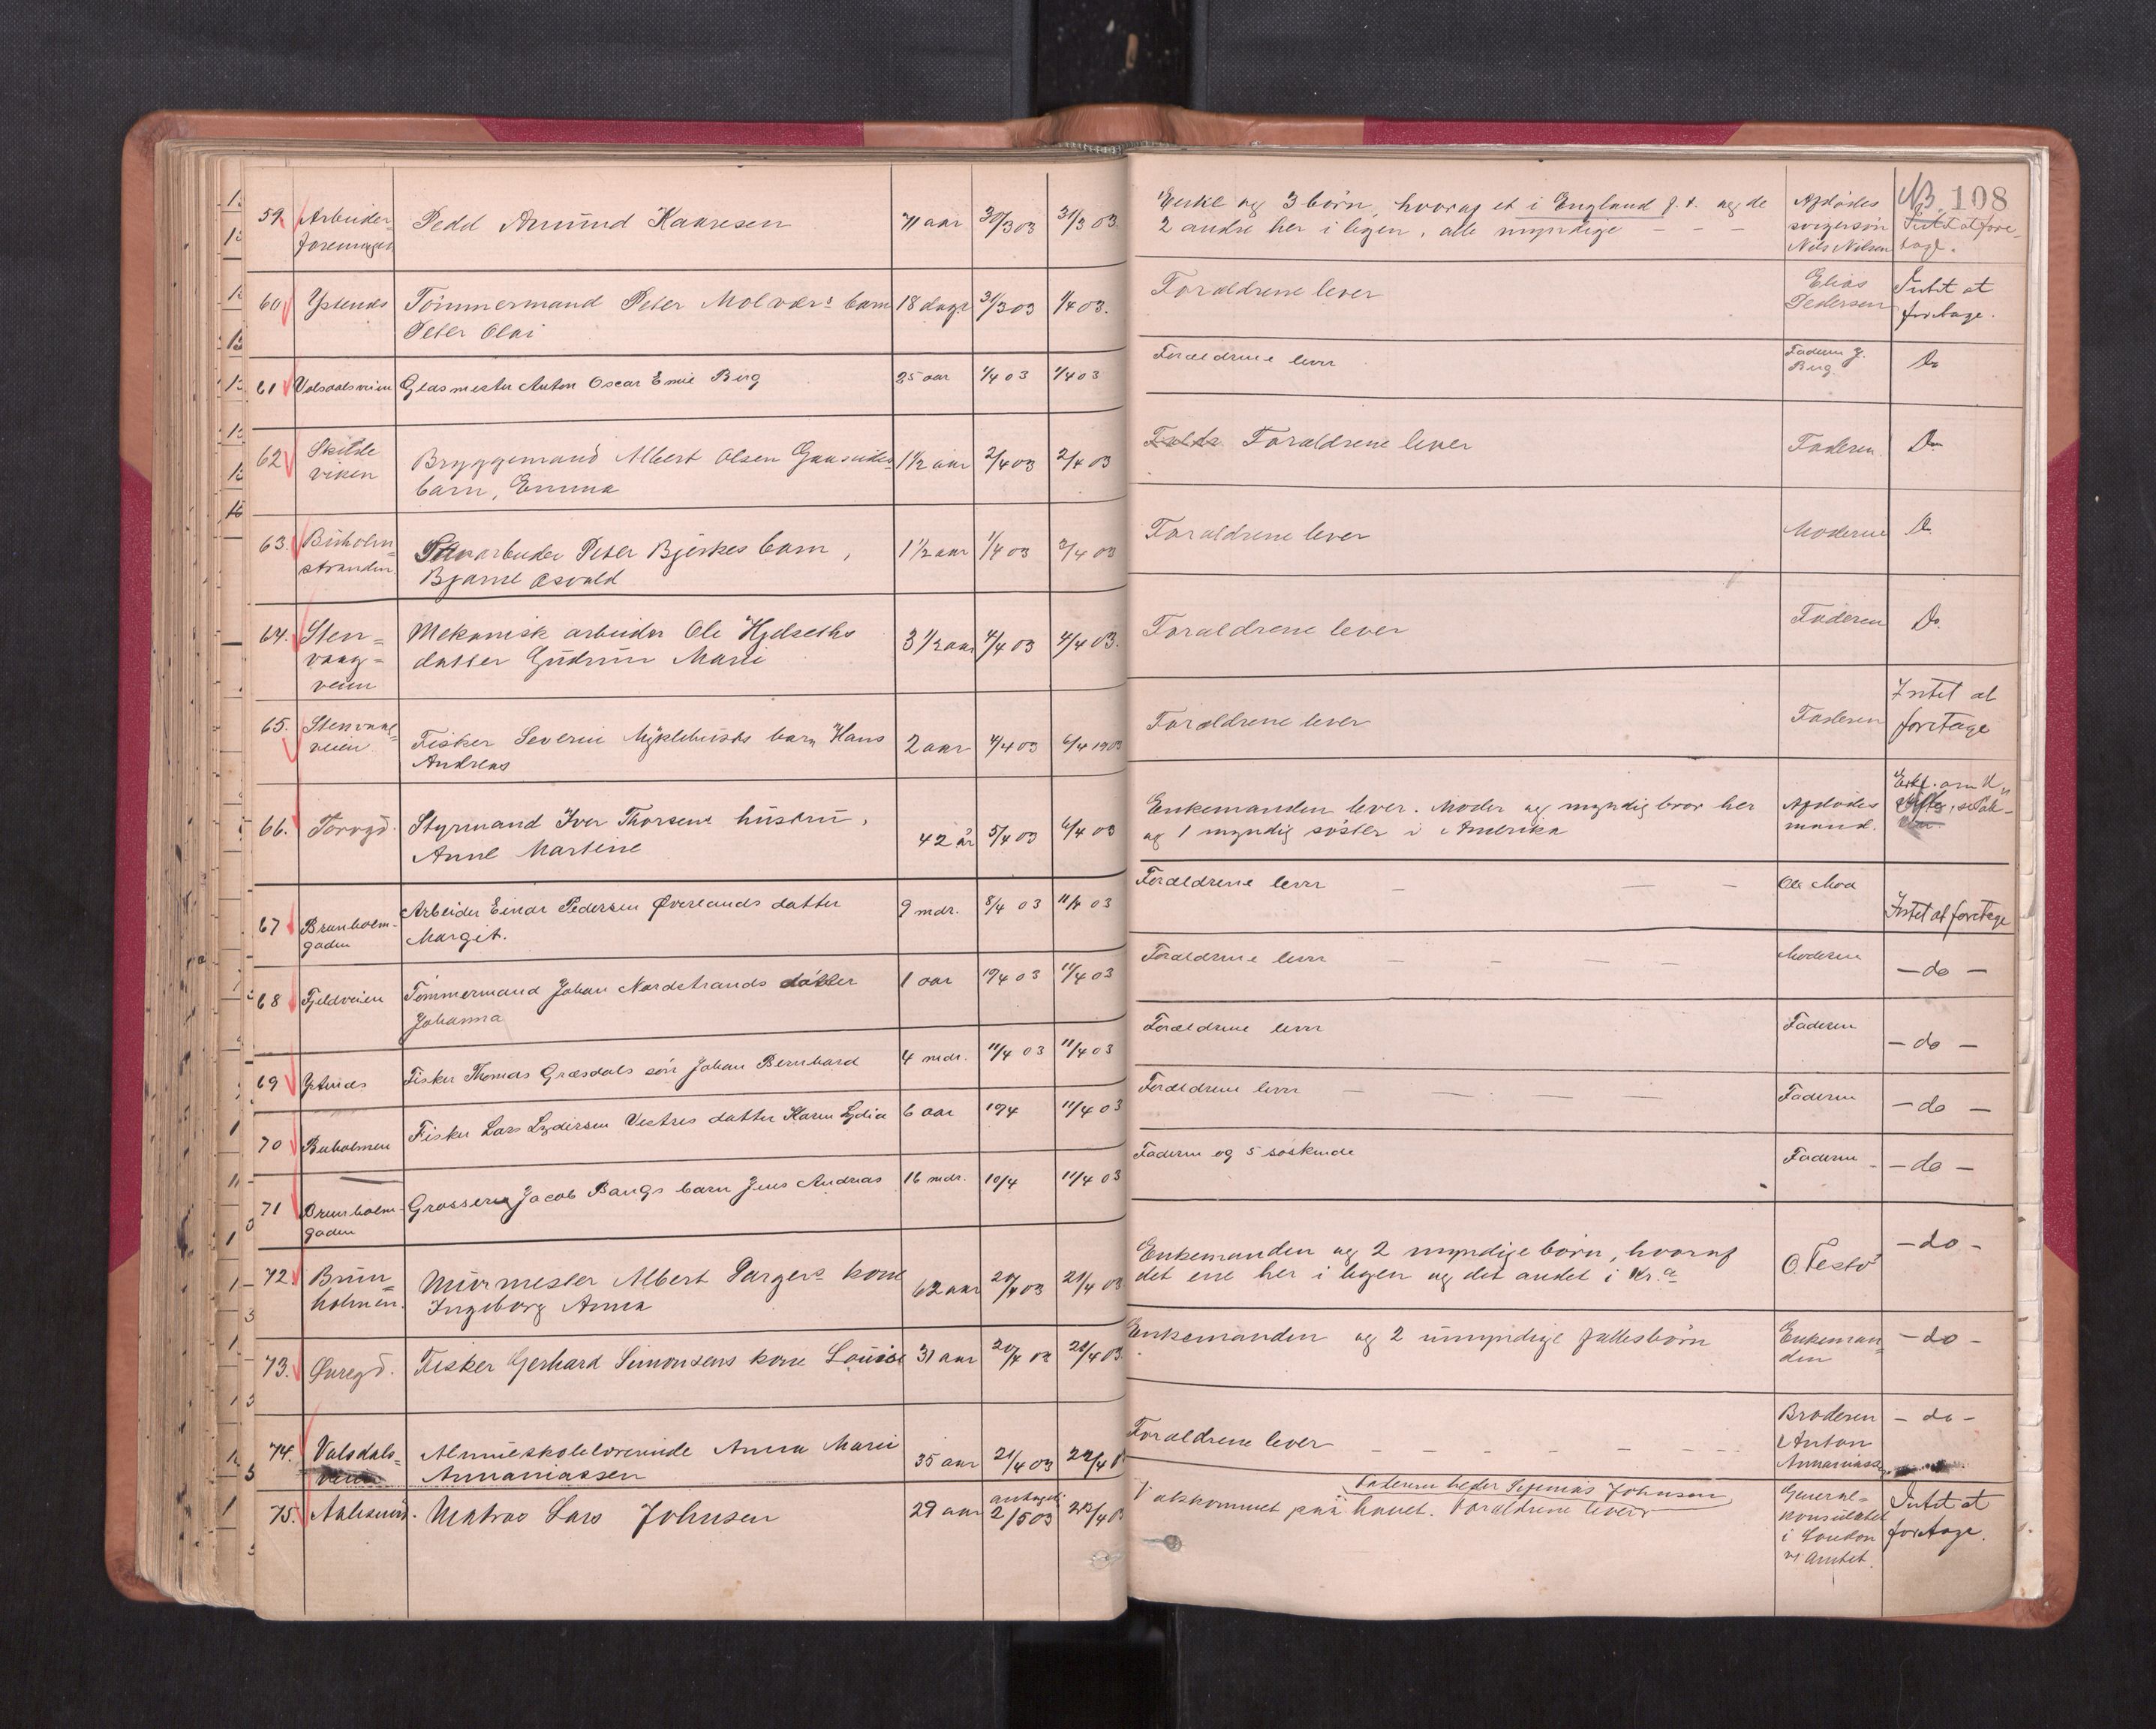 NB. 108
59. Arbeider= Pedel Amund Kaaresen 71 aar 30/3 03 31/3 03. Enke og 3 börn, hvoraf et i England f. t. og de Afdödes Intet at fore-
foreningen 2 andre her i byen, alle myndige — — — svigersön tage.
Nils Nilsen
60 Ystenes Tömmermand Peter Molværs barn 18 dage 31/3 03 1/4 03. Forældrene lever Elias Intet at
Peter Olai Pedersen foretage.
61 Volsdalsveien Glasmester Anton Oscar Emil Berg 25 aar 1/4 03 1/4 03 Forældrene lever Faderen J. Do
Berg
62 Skutvik Bryggemand Albert Olsen 1 1/2 aar 2/4 03 2/4 03 Forældrene lever Faderen Do
viken barn, Emma
63. Buholm= arbeider Peter Bjerkes barn, 1 1/2 aar 1/4 03 2/4 03 Forældrene lever Moderen Do
stranden Bjarne Osvald
64. Sten= Mekanisk arbeider Ole Hjelseths 3 1/2 aar 4/4 03 4/4 03. Forældrene lever Faderen Do.
vaag= datter Gudrun Marie
veien
65. Stenvaag= Fisker Severin Myklebusts barn Hans 2 aar 4/4 03 6/4 1903 Forældrene lever Faderen Intet at
veien Andreas foretage
66. Torvgd. Styrmand Iver Thorsens hustru, 42 år 5/4 03 6/4 03 Enkemanden lever. Moder og myndig bror her Afdödes
Anne Martine og 1 myndig söster i Amerika mand.
67 Brunholm- Arbeider Einar Pedersen Øverlands datter 9 mdr. 8/4 03 11/4 03 Forældrene lever — — — Ole Moa Intet at foretage
gaden Margit.
68 Fjeldveien Tömmermand Johan Nordstrands datter 1 aar 10/4 03 11/4 03 Forældrene lever — — — — Moderen — do —
Johanna
69 Ystenes Fisker Thomas Græsdals sön Johan Bernhard 4 mdr. 11/4 03 11/4 03 Forældrene lever Faderen — do —
70 Buholmen Fisker Lars Lydersen Vestres datter Karen Lydia 6 aar 10/4 11/4 03 Forældrene lever — — — — Faderen — do —
71 Brunholm- Grosserer Jacob Bangs barn Jens Andreas 16 mdr. 10/4 11/4 03 Faderen og 5 söskende Faderen — do —
gaden
72. Brun= Murmester Albert Pargers kone 62 aar 20/4 03 21/4 03 Enkemanden og 2 myndige börn, hvoraf O. Testö — do —
holmen. Ingeborg Anna det ene her i byen og det andet i Kr.a
73. Øvregd. Fisker Gerhard Simonsens kone Louise 31 aar 20/4 03 22/4 03. Enkemanden og 2 umyndige fællesbörn Enkeman= — do —
den
74. Volsdals= Almueskolelærerinde Anna Marie 35 aar 21/4 03 22/4 03 Forældrene lever — — — — — Broderen — do —
veien Annaniassen Anton
Annaniassen
75. Aalesund. Matros Lars Johnsen 29 aar antagelig 2/5 03 Faderen heder Johnsen General= Intet at
omkommet paa havet. Forældrene lever konsulatet foretage.
i London
v/ Amtet.